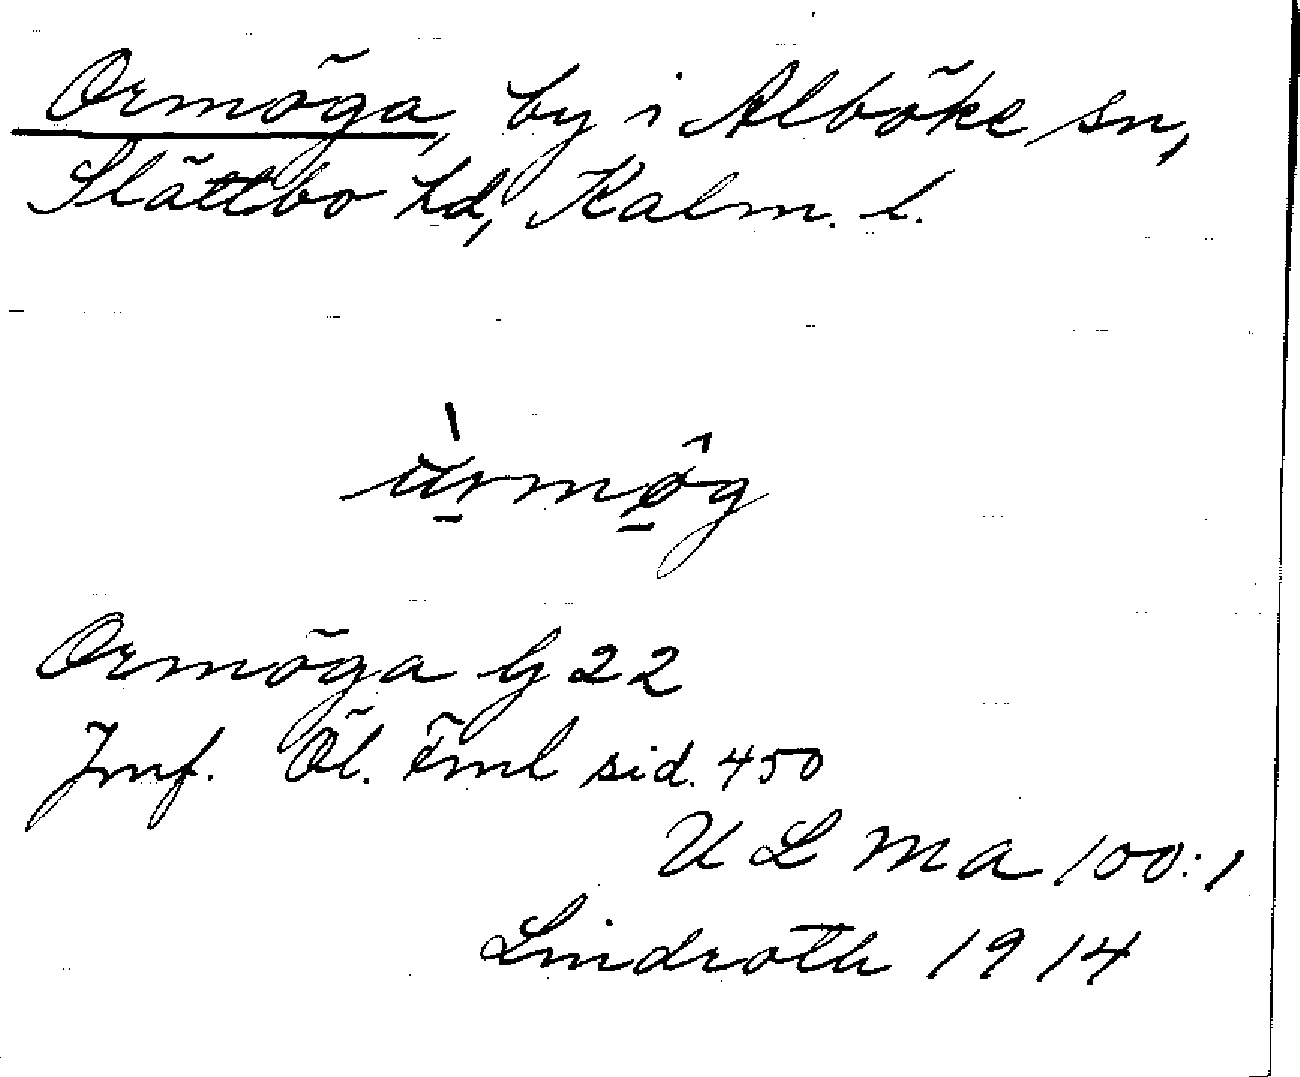 Ormöga, by i Alböke sn,
Slättbo hd, Kalm. l.
ùrmög
Ormöga G 22
Jmf. Öl. Fml sid. 450
ULMA 100:1
Lindroth 1914